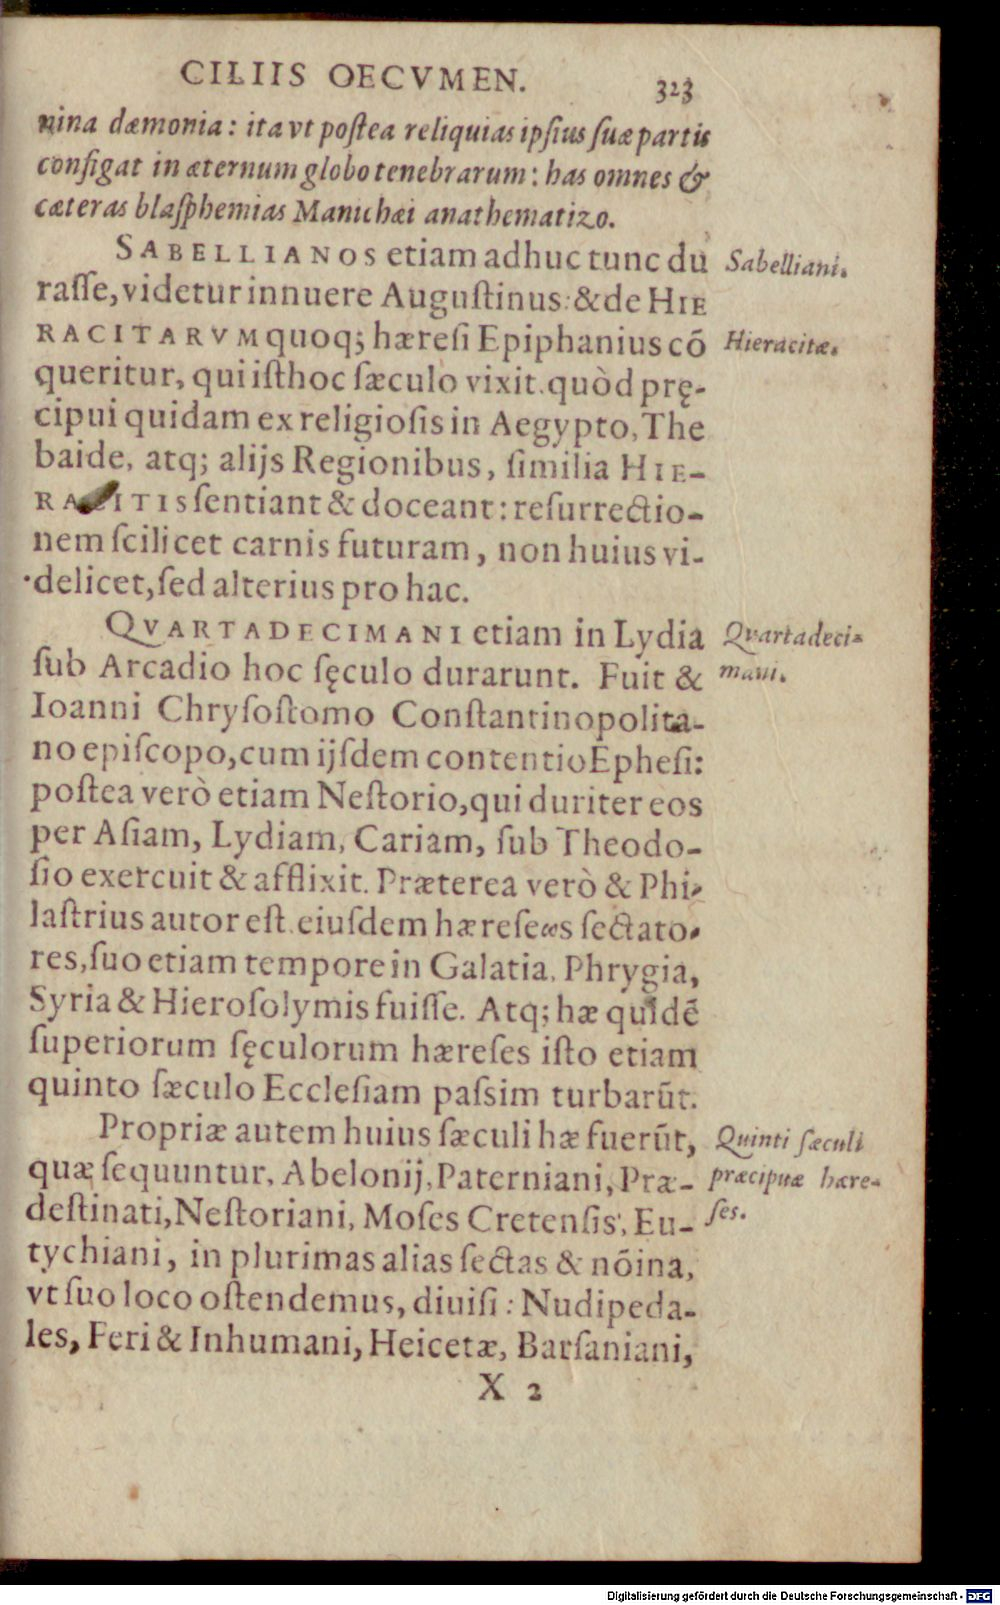 CILIIS OECVMEN. 323
nina dæmonia: ita vt poſtea reliquias ipſius ſuæ partis
configat in æternum globo tenebrarum: has omnes &
cæteras blaſphemias Manichæi anathematizo.
SABELLIANOS etiam adhuc tunc du
raſſe, videtur innuere Auguſtinus: & de HIE
RACITARVM quoq; hæreſi Epiphanius cō
queritur, qui iſthoc ſæculo vixit. quòd prę-
cipui quidam ex religioſis in Aegypto, The
baide, atq; alijs Regionibus, ſimilia HIE-
RACITIS ſentiant & doceant: reſurrectio-
nem ſcilicet carnis futuram, non huius vi-
delicet, ſed alterius pro hac.
QVARTADECIMANI etiam in Lydia
ſub Arcadio hoc ſęculo durarunt. Fuit &
Ioanni Chryſoſtomo Conſtantinopolita-
no epiſcopo, cum ijſdem contentio Epheſi:
poſtea verò etiam Neſtorio, qui duriter eos
per Aſiam, Lydiam, Cariam, ſub Theodo-
ſio exercuit & afflixit. Præterea verò & Phi-
laſtrius autor eſt. eiuſdem hæreſeωs ſectato-
res, ſuo etiam tempore in Galatia, Phrygia,
Syria & Hieroſolymis fuiſſe. Atq; hæ quidē
ſuperiorum ſęculorum hæreſes iſto etiam
quinto ſæculo Eccleſiam paſsim turbarūt.
Propriæ autem huius ſæculi hæ fuerūt,
quæ ſequuntur, Abelonij, Paterniani, Præ-
deſtinati, Neſtoriani, Moſes Cretenſis, Eu-
tychiani, in plurimas alias ſectas & nōina,
vt ſuo loco oſtendemus, diuiſi: Nudipeda-
les, Feri & Inhumani, Heicetæ, Barſaniani,
X 2
Sabelliani.
Hieracitæ.
Quartadeci-
mani.
Quinti ſæculi
præcipuæ hære-
ſes.
Digitalisierung gefördert durch die Deutsche Forschungsgemeinschaft - DFG